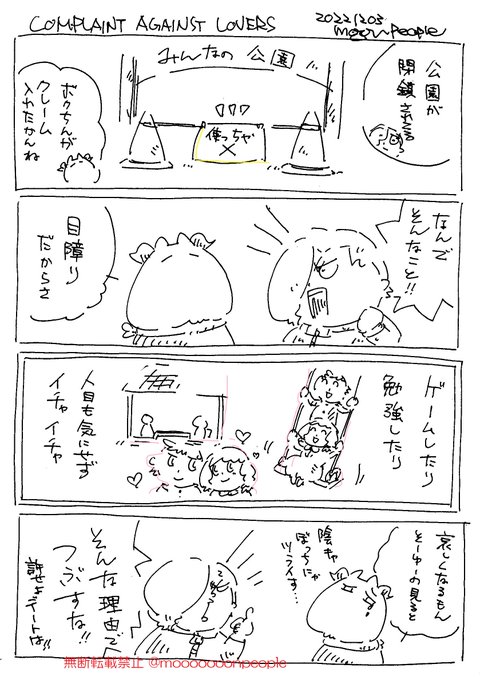 COMPLAINT AGAINST LOVERS
20221203
moonpeople
みんなの公園
公園が
閉鎖されてる
使っちゃ
×
ボクちんが
クレーム
入れたかんね
なんで
そんなこと!!
目障り
だからさ
ゲームしたり
勉強したり
人目も気にせず
イチャイチャ
哀しくなるもん
そーゆーの見ると
陰キャ
ぼっちにゃ
ツラえす…
そんな理由で
つぶすな!!
許せよデートは!!
無断転載禁止 @moooooooonpeople